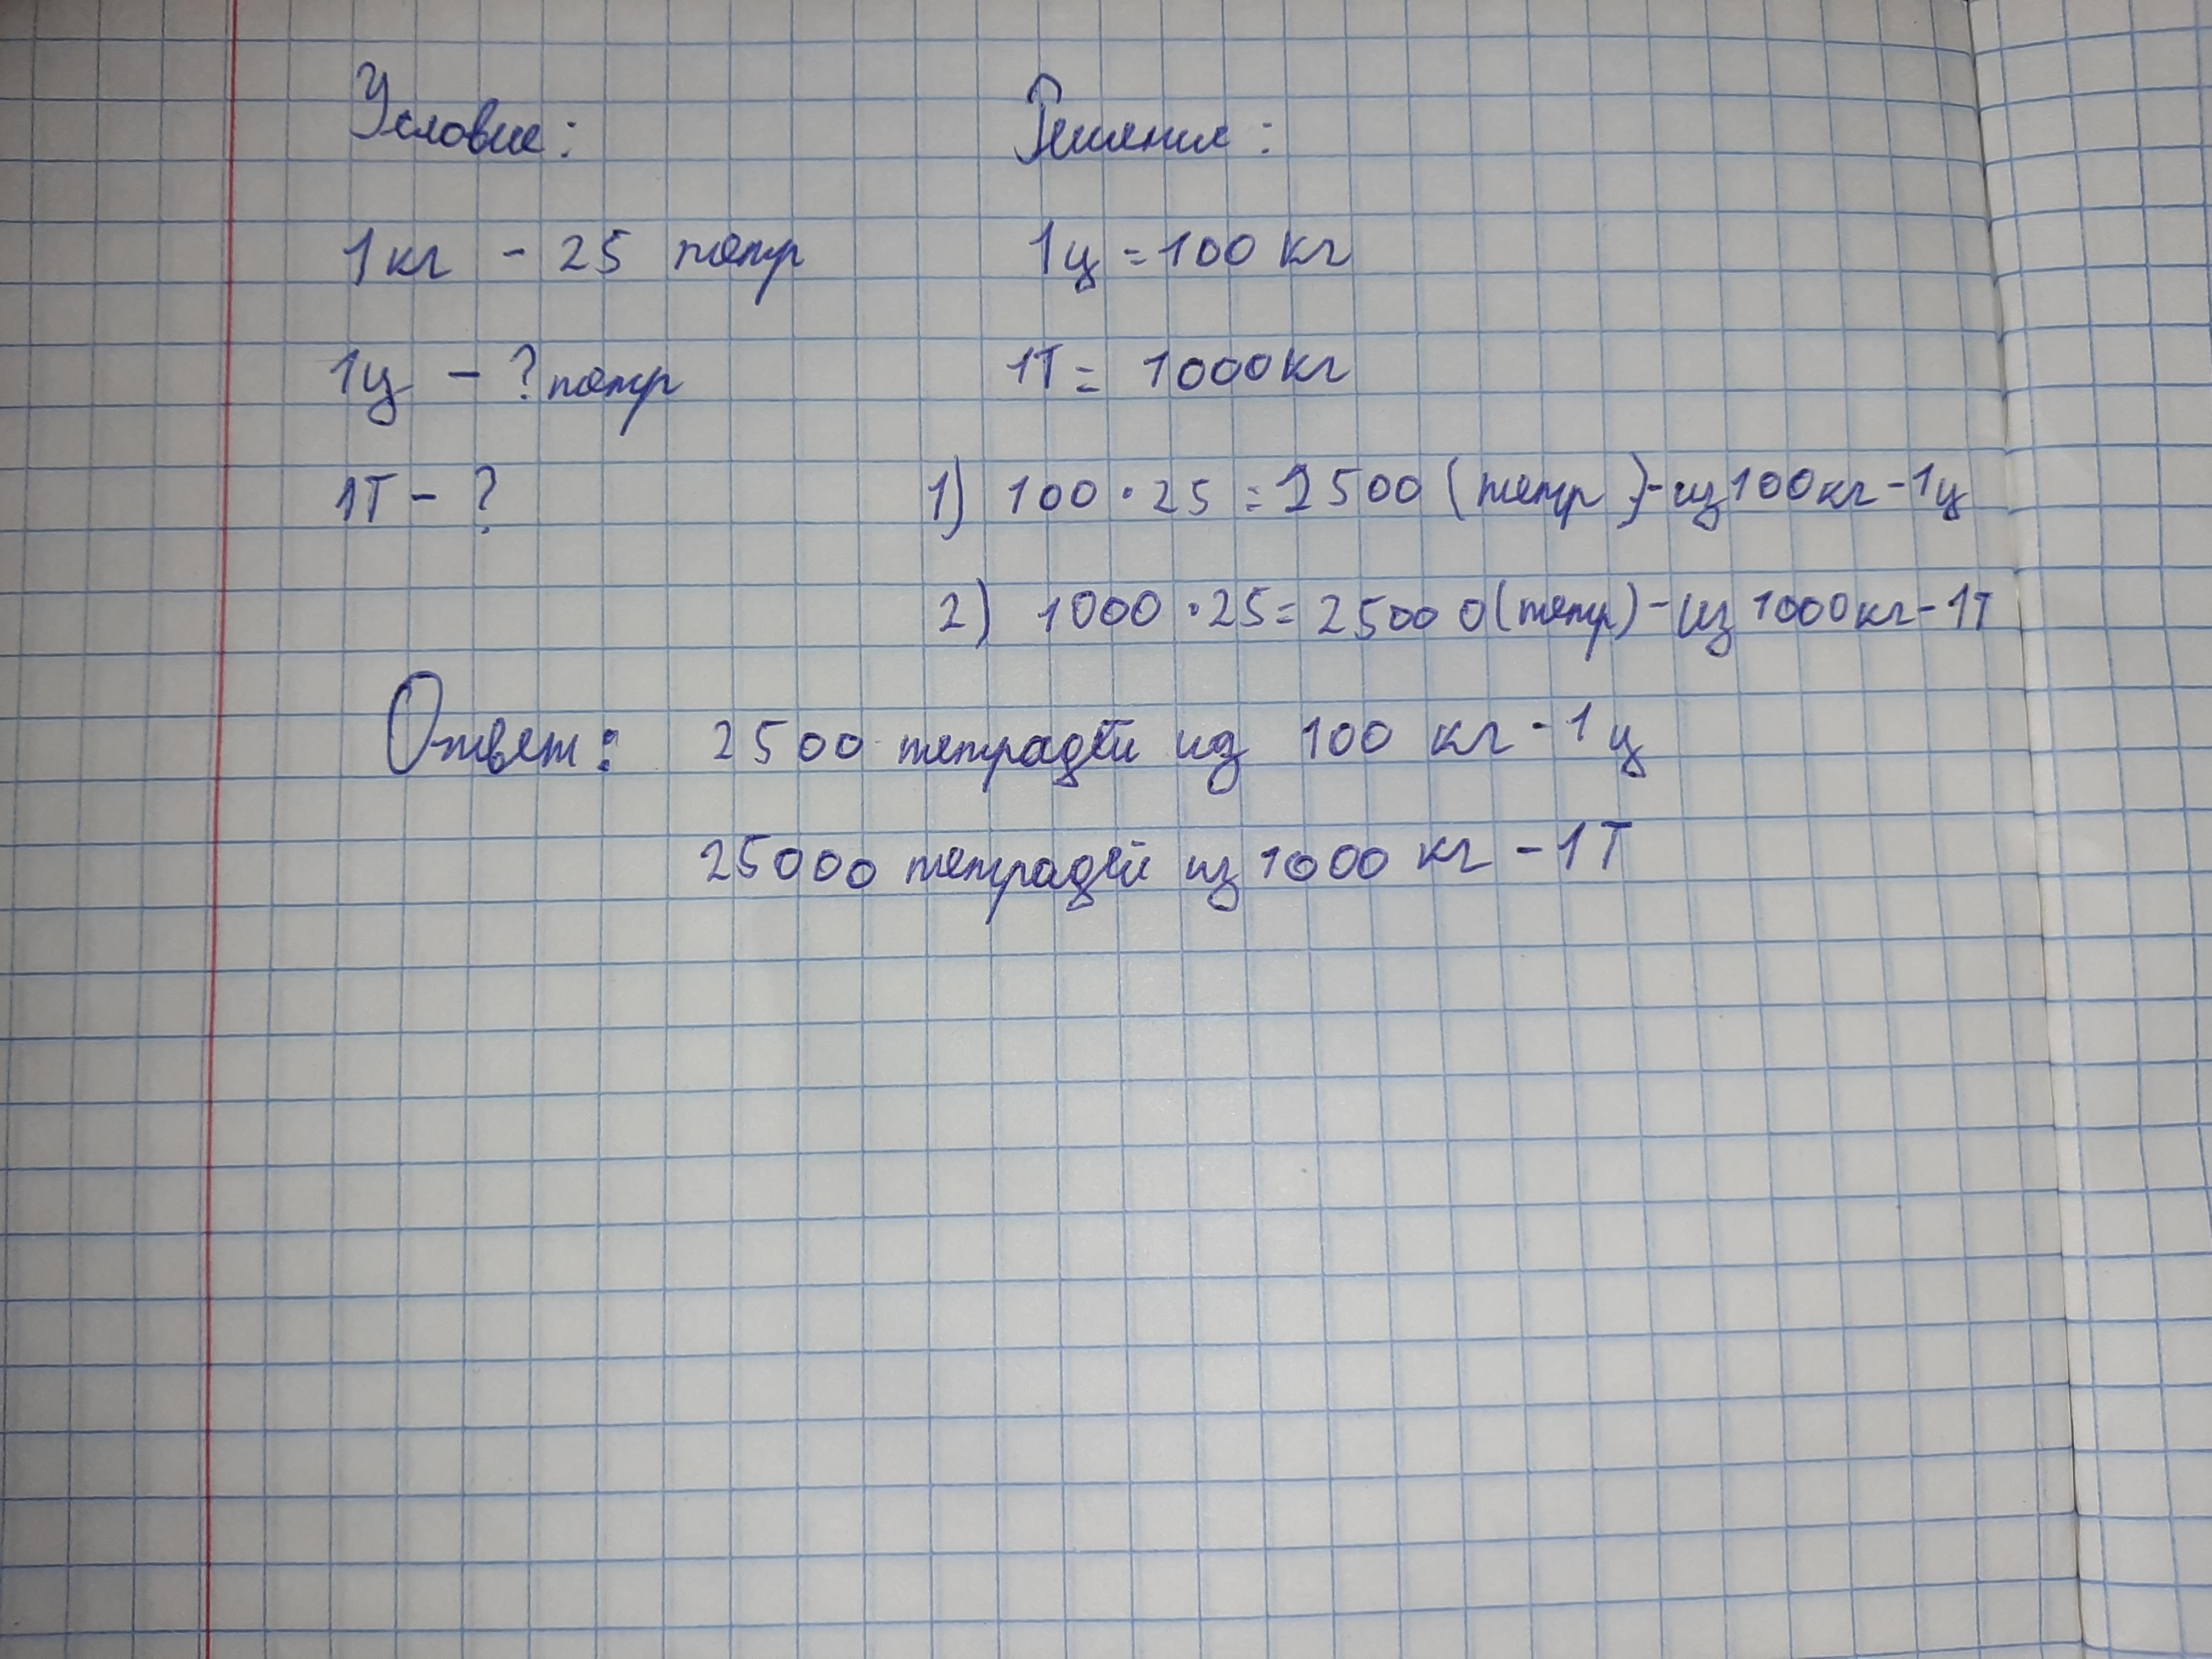 Условие:
Решения:
1кг - 25 тетр
1ц = 100 кг
1ц - ? тетр
1Т = 1000кг
1Т - ?
1) 100 · 25 = 2500 (тетр) - из 100кг - 1ц
2) 1000 · 25 = 25000 (тетр) - из 1000кг - 1Т
Ответ: 2500 тетрадей из 100 кг - 1ц
25000 тетрадей из 1000 кг - 1Т